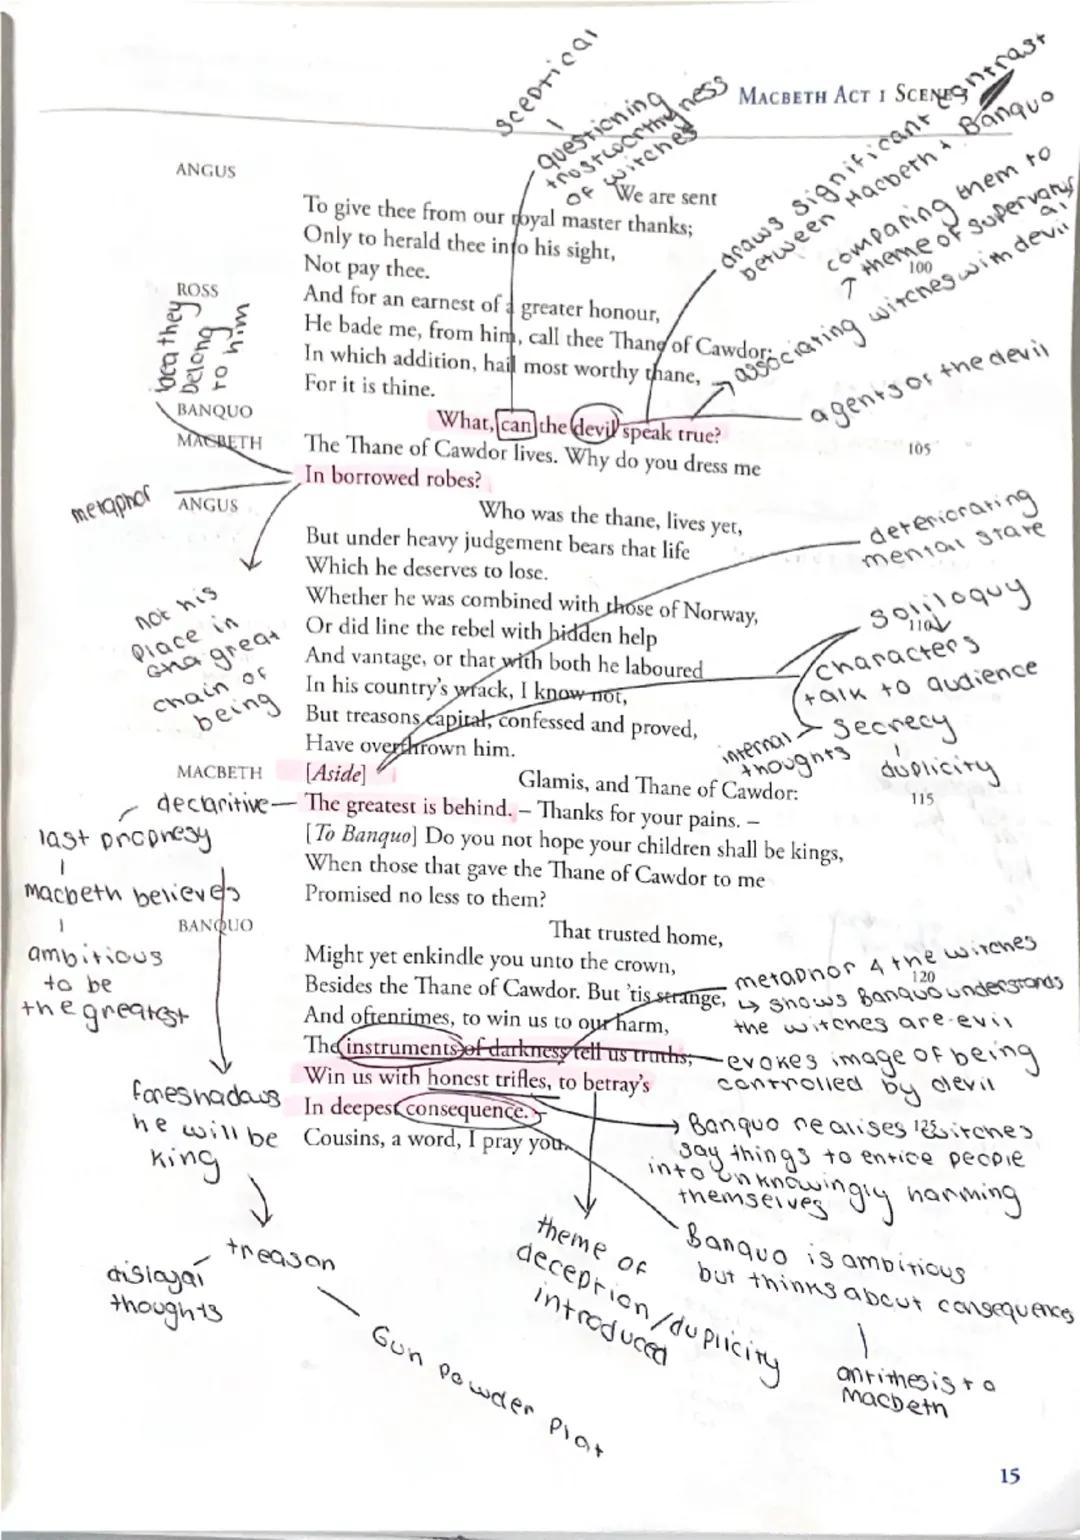 MACBETH ACT 1 SCENE 3
sceptical
questioning
trustworthyness
of witches
draws significant contrast
between Macbeth + Banquo
comparing them to
theme of supernatural
associating witches with devil
agents of the devil
ANGUS
We are sent
To give thee from our royal master thanks;
Only to herald thee into his sight,
Not pay thee.
100
ROSS
And for an earnest of a greater honour,
He bade me, from him, call thee Thane of Cawdor:
In which addition, hail most worthy thane,
For it is thine.
idea they
belong
to him
BANQUO
What, can the devil speak true?
MACBETH
The Thane of Cawdor lives. Why do you dress me
105
In borrowed robes?
metaphor
not his
place in
tha great
chain of
being
ANGUS
Who was the thane, lives yet,
But under heavy judgement bears that life
Which he deserves to lose.
Whether he was combined with those of Norway,
Or did line the rebel with hidden help
110
And vantage, or that with both he laboured
In his country's wrack, I know not,
But treasons capital, confessed and proved,
Have overthrown him.
deteriorating
mental state
soliloquy
characters
talk to audience
internal
thoughts
secrecy
duplicity
MACBETH
[Aside]
Glamis, and Thane of Cawdor:
115
The greatest is behind. – Thanks for your pains. –
[To Banquo] Do you not hope your children shall be kings,
When those that gave the Thane of Cawdor to me
Promised no less to them?
declaritive
last prophesy
Macbeth believes
ambitious
to be
the greatest
foreshadows
he will be
king
treason
disloyal
thoughts
Gun Powder Plot
BANQUO
That trusted home,
Might yet enkindle you unto the crown,
Besides the Thane of Cawdor. But 'tis strange,
120
And oftentimes, to win us to our harm,
The instruments of darkness tell us truths;
Win us with honest trifles, to betray's
In deepest consequence. –
Cousins, a word, I pray you.
125
metaphor 4 the witches
shows Banquo understands
the witches are evil
evokes image of being
controlled by devil
Banquo realises witches
say things to entice people
into unknowingly harming
themselves
Banquo is ambitious
but thinks about consequences
antithesis to
Macbeth
theme of
deception/duplicity
introduced
15